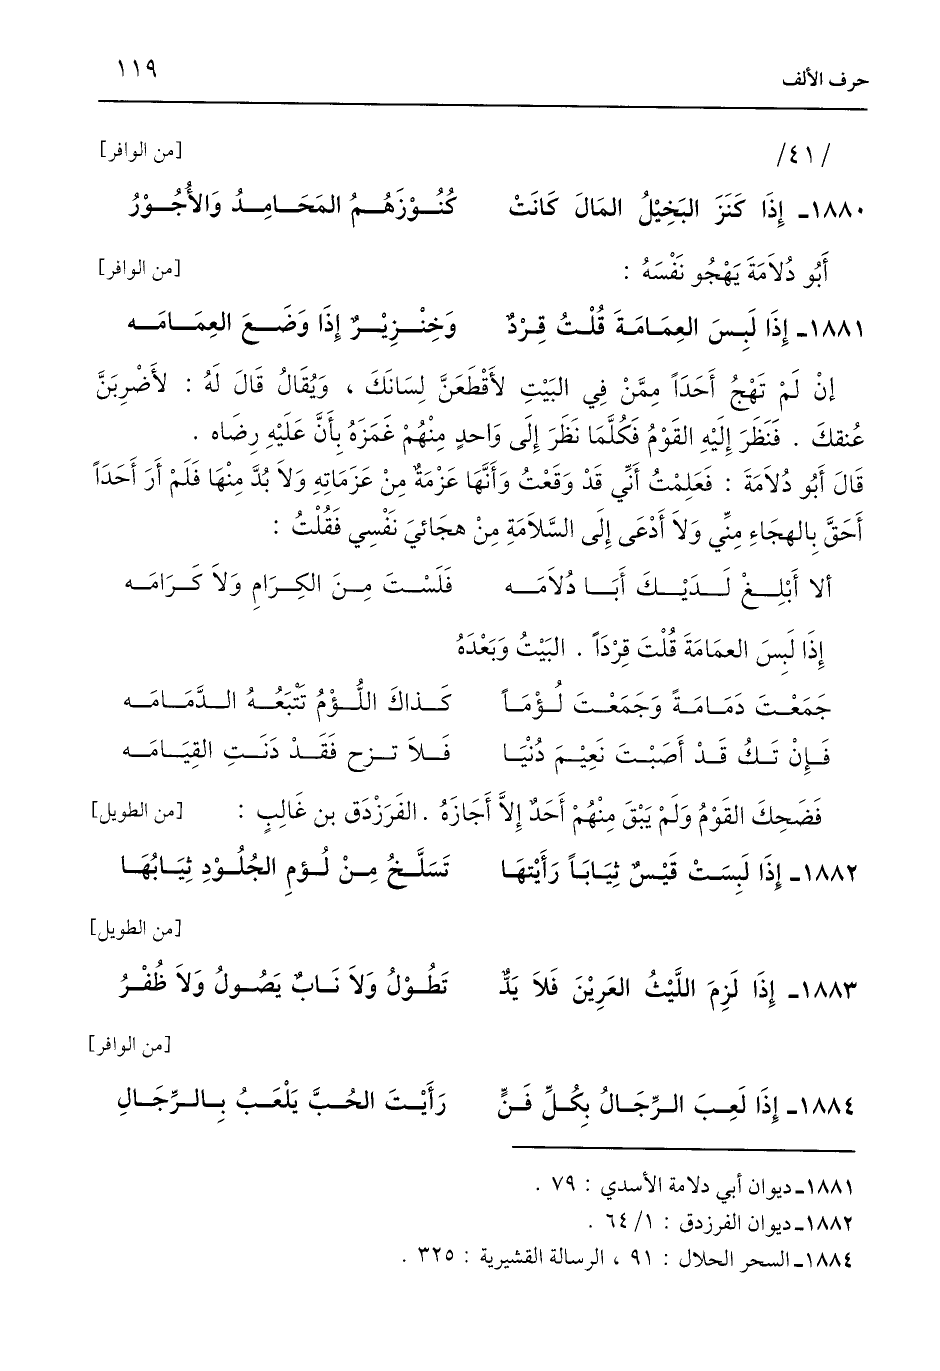 حرف الألف ١١٩
/٤١/ [من الوافر]
١٨٨٠- إِذَا كَنَزَ البَخِيْلُ المَالَ كَانَتْ كُنُوْزَهُمُ المَحَامِدُ وَالأُجُوْرُ
أَبُو دُلاَمَةَ يَهْجُو نَفْسَهُ : [من الوافر]
١٨٨١- إِذَا لَبِسَ العِمَامَةَ قُلْتُ قِرْدٌ وَخِنْزِيْرٌ إِذَا وَضَعَ العِمَامَه
إنْ لَمْ تَهْجُ أَحَدَاً مِمَّنْ فِي البَيْتِ لأَقْطَعَنَّ لِسَانَكَ ، وَيُقَالُ قَالَ لَهُ : لأَضْرِبَنَّ
عُنقكَ . فَنَظَرَ إِلَيْهِ القَوْمُ فَكُلَّمَا نَظَرَ إِلَى وَاحدٍ مِنْهُمْ غَمَزَهُ بِأَنَّ عَلَيْهِ رِضَاه .
قَالَ أَبُو دُلاَمَةَ : فَعَلِمْتُ أَنِّي قَدْ وَقَعْتُ وَأَنَّهَا عَزْمَةٌ مِنْ عَزَمَاتِهِ وَلاَ بُدَّ مِنْهَا فَلَمْ أَرَ أَحَدَاً
أَحَقَّ بِالهِجَاءِ مِنِّي وَلاَ أَدْعَى إِلَى السَّلاَمَةِ مِنْ هجَائيَ نَفْسِي فَقُلْتُ :
ألا أَبْلِغْ لَدَيْكَ أَبَا دُلاَمَه فَلَسْتَ مِنَ الكِرَامِ وَلاَ كَرَامَه
إِذَا لَبِسَ العمَامَةَ قُلْتَ قِرْدَاً . البَيْتُ وَبَعْدَهُ
جَمَعْتَ دَمَامَةً وَجَمَعْتَ لُؤْمَاً كَذاكَ اللُّؤْمُ تَتْبَعُهُ الدَّمَامَه
فَإِنْ تَكُ قَدْ أَصَبْتَ نَعِيْمَ دُنْيَا فَلاَ تزح فَقَدْ دَنَتِ القِيَامَه
فَضَحِكَ القَوْمُ وَلَمْ يَبْقَ مِنْهُمْ أَحَدٌ إِلاَّ أَجَازَهُ . الفَرَزْدَق بن غَالِبٍ : [من الطويل]
١٨٨٢- إِذَا لَبِسَتْ قَيْسٌ ثِيَابَاً رَأَيْتهَا تَسَلَّخُ مِنْ لُؤمِ الجُلُوْدِ ثِيَابُهَا
[من الطويل]
١٨٨٣- إِذَا لَزِمَ اللَّيْثُ العَرِيْنَ فَلاَ يَدٌ تَطُوْلُ وَلاَ نَابٌ يَصُولُ وَلاَ ظُفْرُ
[من الوافر]
١٨٨٤- إِذَا لَعِبَ الرِّجَالُ بِكُلِّ فَنٍّ رَأَيْتَ الحُبَّ يَلْعَبُ بِالرِّجَالِ
١٨٨١- ديوان أبي دلامة الأسدي : ٧٩ .
١٨٨٢- ديوان الفرزدق : ١/ ٦٤ .
١٨٨٤- السحر الحلال : ٩١ ، الرسالة القشيرية : ٣٢٥ .